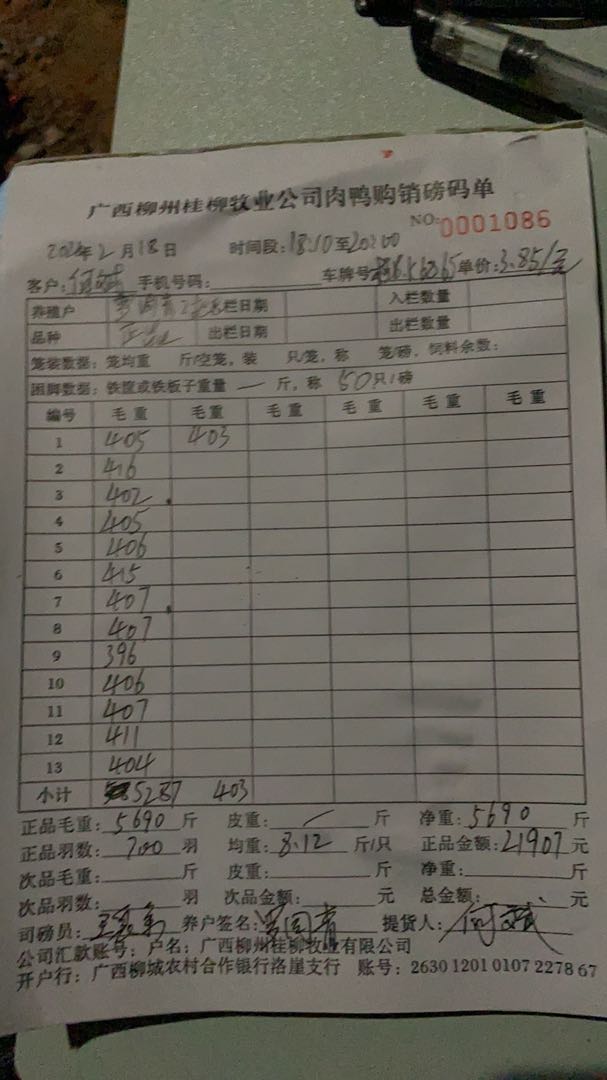 广西柳州桂柳牧业公司肉鸭购销磅码单
NO: 0001086
2024年2月18日 时间段: 18:10至20:00
客户: 何斌 手机号码: 车牌号 单价: 3.85/元
养殖户 入栏日期 入栏数量
品种 正品 出栏日期 出栏数量
笼装数据: 笼均重 斤/空笼, 装 只/笼, 称 笼/磅, 饲料余数:
困脚数据: 铁筐或铁板子重量 一 斤, 称 50只/磅
编号 毛重 毛重 毛重 毛重 毛重 毛重
1 405 403
2 416
3 402
4 405
5 406
6 415
7 407
8 407
9 396
10 406
11 407
12 411
13 404
小计 5287 403
正品毛重: 5690 斤 皮重: / 斤 净重: 5690 斤
正品羽数: 700 羽 均重: 8.12 斤/只 正品金额: 21907 元
次品毛重: 斤 皮重: 斤 净重: 斤
次品羽数: 羽 次品金额: 元 总金额: 元
司磅员: 养户签名: 提货人: 何斌
公司汇款账号: 户名: 广西柳州桂柳牧业有限公司
开户行: 广西柳城农村合作银行洛崖支行 账号: 2630 1201 0107 2278 67